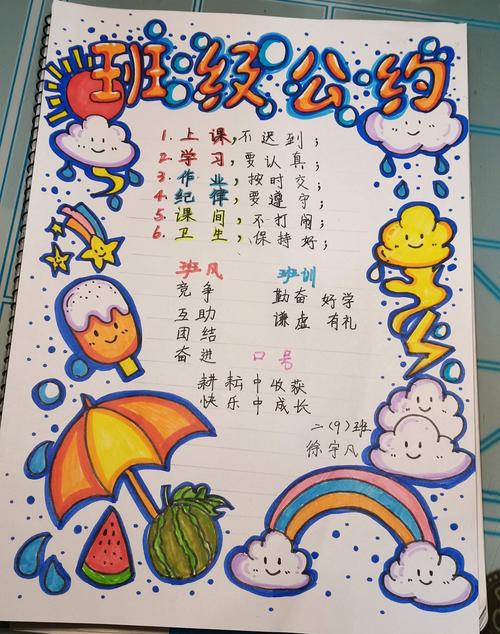 班级公约
1. 上课,不迟到;
2 学习,要认真;
3 作业,按时交;
4. 纪律,要遵守;
5. 课间,不打闹;
6. 卫生,保持好;
班风 班训
竞争 勤奋 好学
互助 谦虚 有礼
团结
奋进 口号
耕耘中收获
快乐中成长
二(9)班
徐宇凡